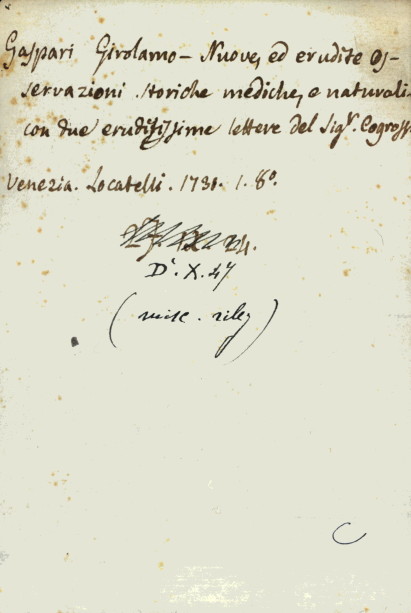 Gaspari Girolamo - Nuove, ed erudite Os-
servazioni storiche mediche, e naturali
con due eruditissime lettere del Sig.r Cogross
Venezia. Locatelli. 1731. 1. 8o.
24.
D'. X. 47
(misc. rileg)
C